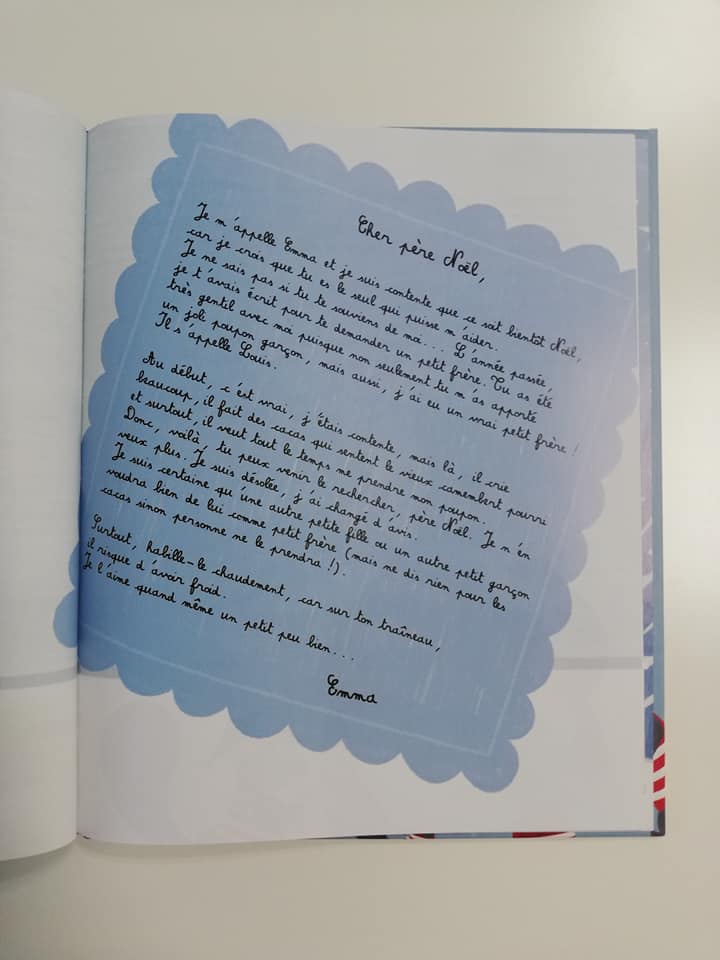 Cher père Noël,
Je m'appelle Emma et je suis contente que ce soit bientôt Noël,
car je crois que tu es le seul qui puisse m'aider.
Je ne sais pas si tu te souviens de moi... L'année passée,
je t'avais écrit pour te demander un petit frère. Tu as été
très gentil avec moi puisque non seulement tu m'as apporté
un joli poupon garçon, mais aussi, j'ai eu un vrai petit frère !
Il s'appelle Louis.
Au début, c'est vrai, j'étais contente, mais là, il crie
beaucoup, il fait des cacas qui sentent le vieux camembert pourri
et surtout, il veut tout le temps me prendre mon poupon.
Donc, voilà, tu peux venir le rechercher, père Noël. Je n'en
veux plus. Je suis désolée, j'ai changé d'avis.
Je suis certaine qu'une autre petite fille ou un autre petit garçon
voudra bien de lui comme petit frère (mais ne dis rien pour les
cacas sinon personne ne le prendra !).
Surtout, habille-le chaudement, car sur ton traîneau,
il risque d'avoir froid.
Je l'aime quand même un petit peu bien...
Emma